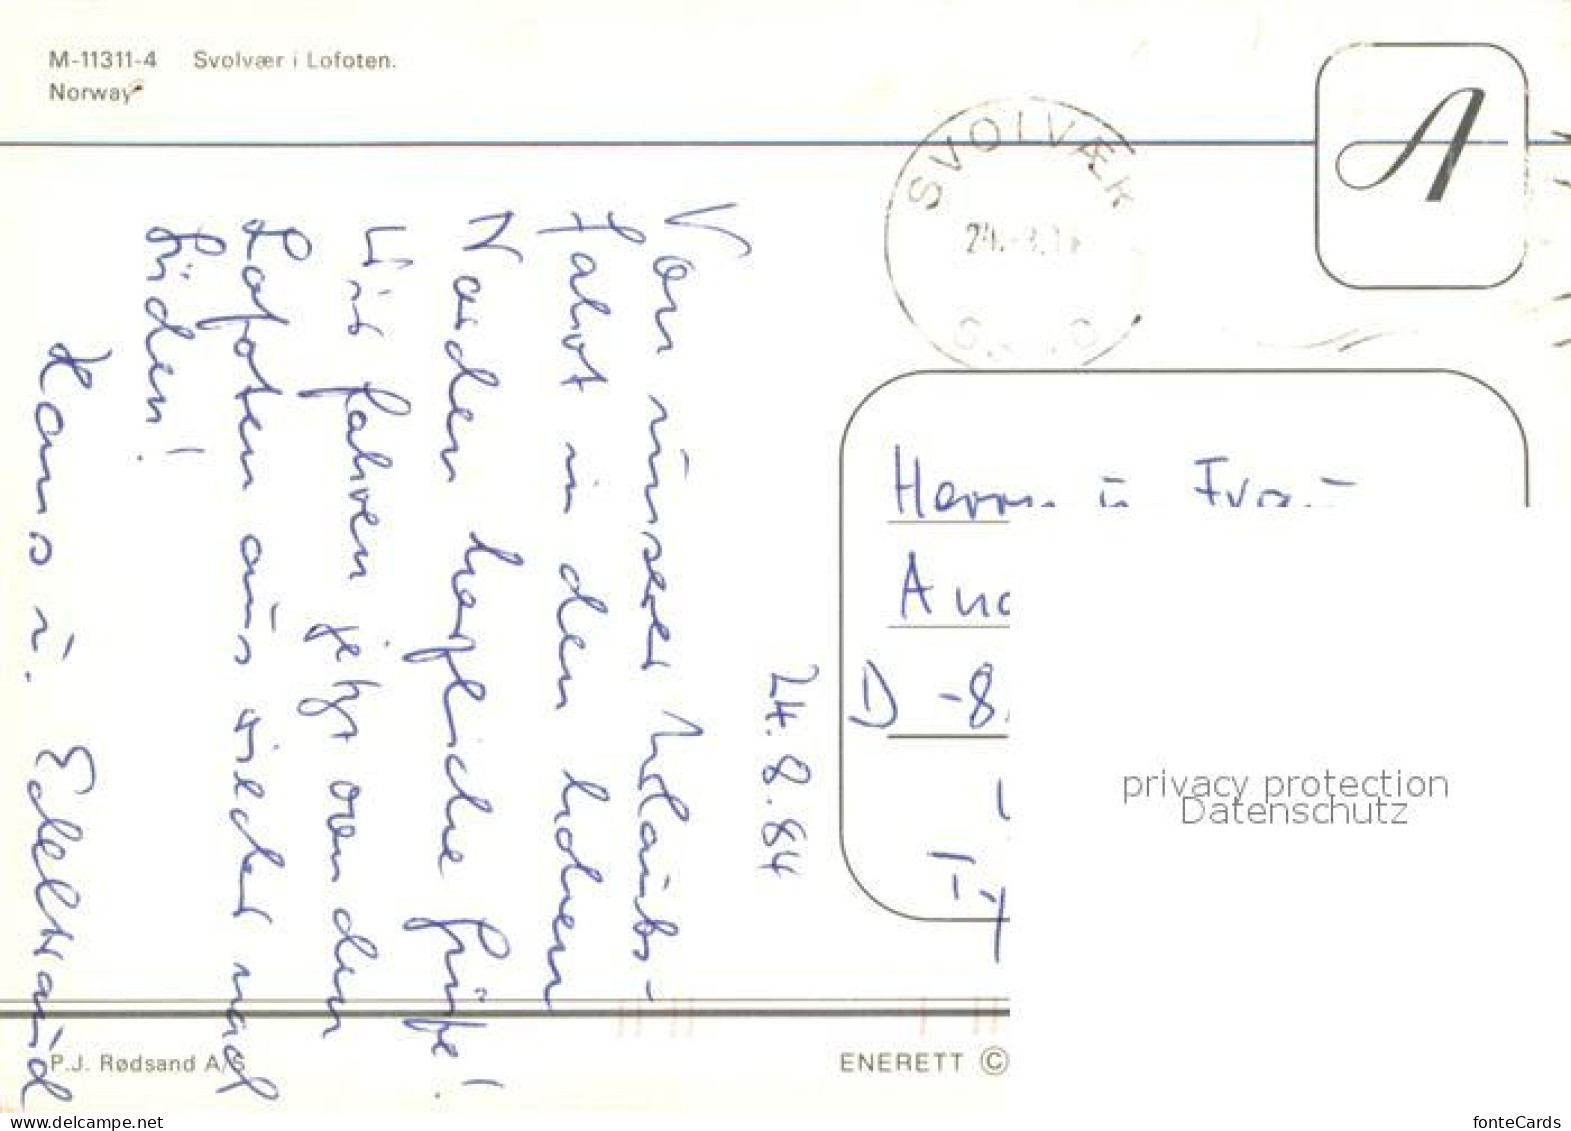 M-11311-4 Svolvær i Lofoten.
Norway
SVOLVÆR
A
24.8.84
Von unserer Urlaubs-
fahrt in den hohen
Norden herzliche Grüße!
Wir fahren jetzt von den
Lofoten aus wieder nach
Süden!
Hans u. Edeltraud
Herrn u. Frau
D -8
privacy protection
Datenschutz
P.J. Rødsand A/S
ENERETT ©
www.delcampe.net
fonteCards